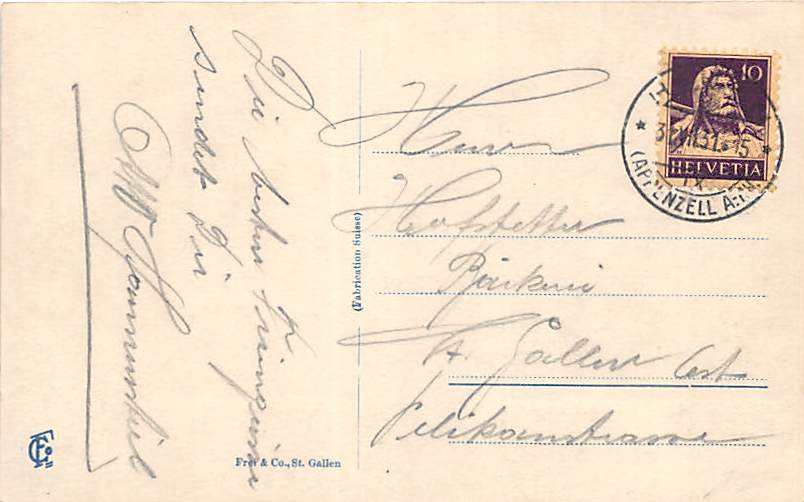 Die besten
sendet Dir
Herrn
Hofstetter
Bäckerei
St. Gallen Ost
Pelikanstrasse
10
HELVETIA
31
15
(APPENZELL A.RH.)
(Fabrication Suisse)
Frei & Co., St. Gallen